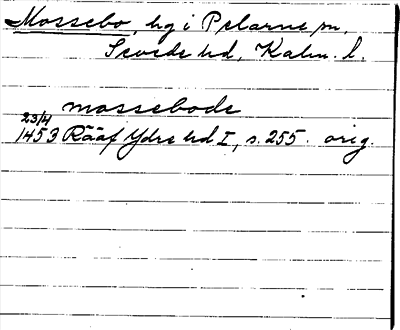 Mossebo, hg i Pelarne sn,
Sevede hd, Kalm. l.
mossebode
23/4
1453 Rääf Ydre hd I, s. 255. orig.